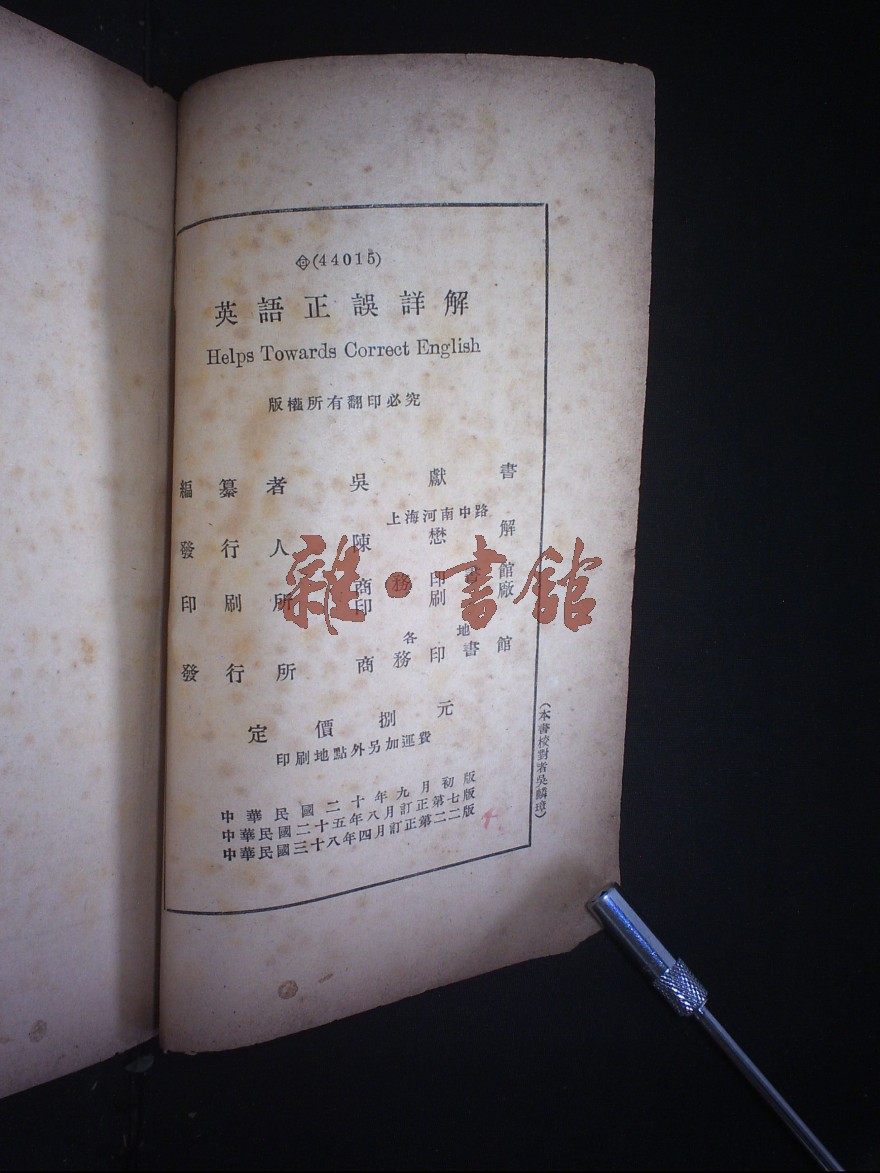 (44015)
英語正誤詳解
Helps Towards Correct English
版權所有翻印必究
編纂者 吳獻書
上海河南中路
發行人 陳懋解
印刷所 商務印書館
印刷廠
各地
發行所 商務印書館
定價捌元
印刷地點外另加運費
中華民國二十年九月初版
中華民國二十五年八月訂正第七版
中華民國三十八年四月訂正第二二版
(本書校對者吳麟璋)
雜·書館